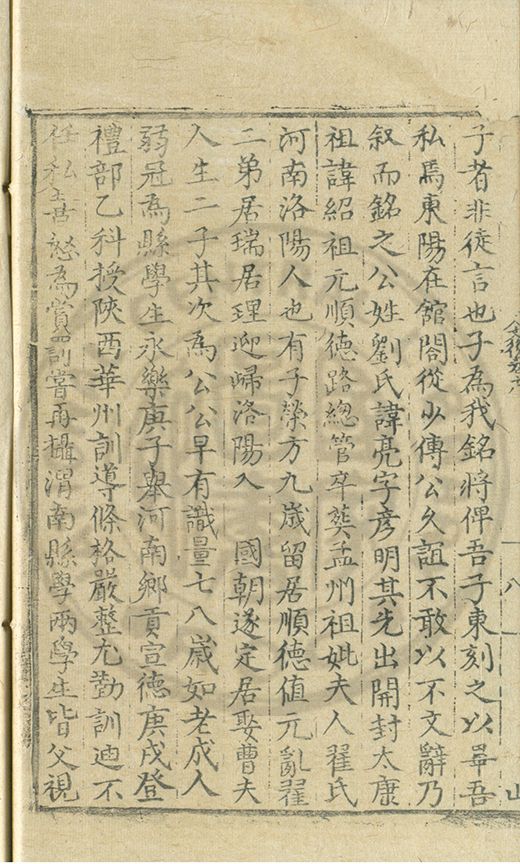 子者非徒言也子為我銘將俾吾子東刻之以畢吾
私焉東陽在館閣從少傅公久誼不敢以不文辭乃
叙而銘之公姓劉氏諱亮字彥明其先出開封太康
祖諱紹祖元順德路總管卒葬孟州祖妣夫人翟氏
河南洛陽人也有子榮方九歲留居順德值元亂翟
二弟居瑞居理迎歸洛陽入　國朝遂定居娶曹夫
人生二子其次為公公早有識量七八歲如老成人
弱冠為縣學生永樂庚子舉河南鄉貢宣德庚戌登
禮部乙科授陝西華州訓導條格嚴整尤勤訓迪不
任私喜怒為賞罰嘗再攝渭南縣學兩學生皆父視
八